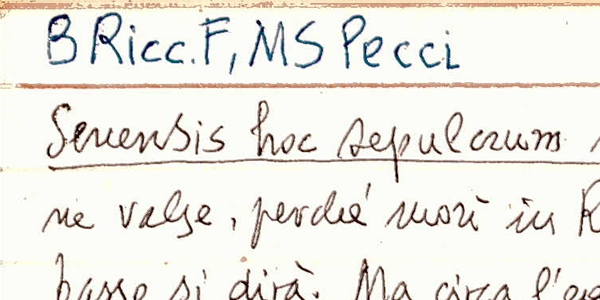 B Ricc. F, MS Pecci
Senensis hoc sepulcrum
ne valse, perché morì in R
basso si dirà. Ma circa l'e